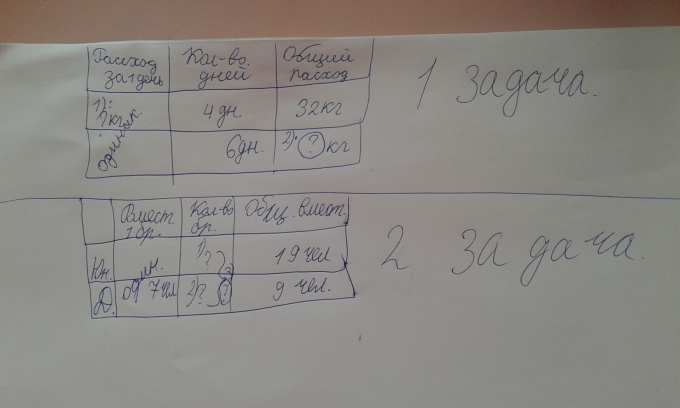 Расход
за 1 день
Кол-во
дней
Общий
расход
1 задача.
1)?
кг
4 дн.
32 кг
одинак
6 дн.
2) ? кг
Вмест
1 бр.
Кол-во
бр.
Общ. вмест.
2 задача.
Юн.
один.
1)?
19 чел
Д.
7 чел
2)?
?
9 чел.